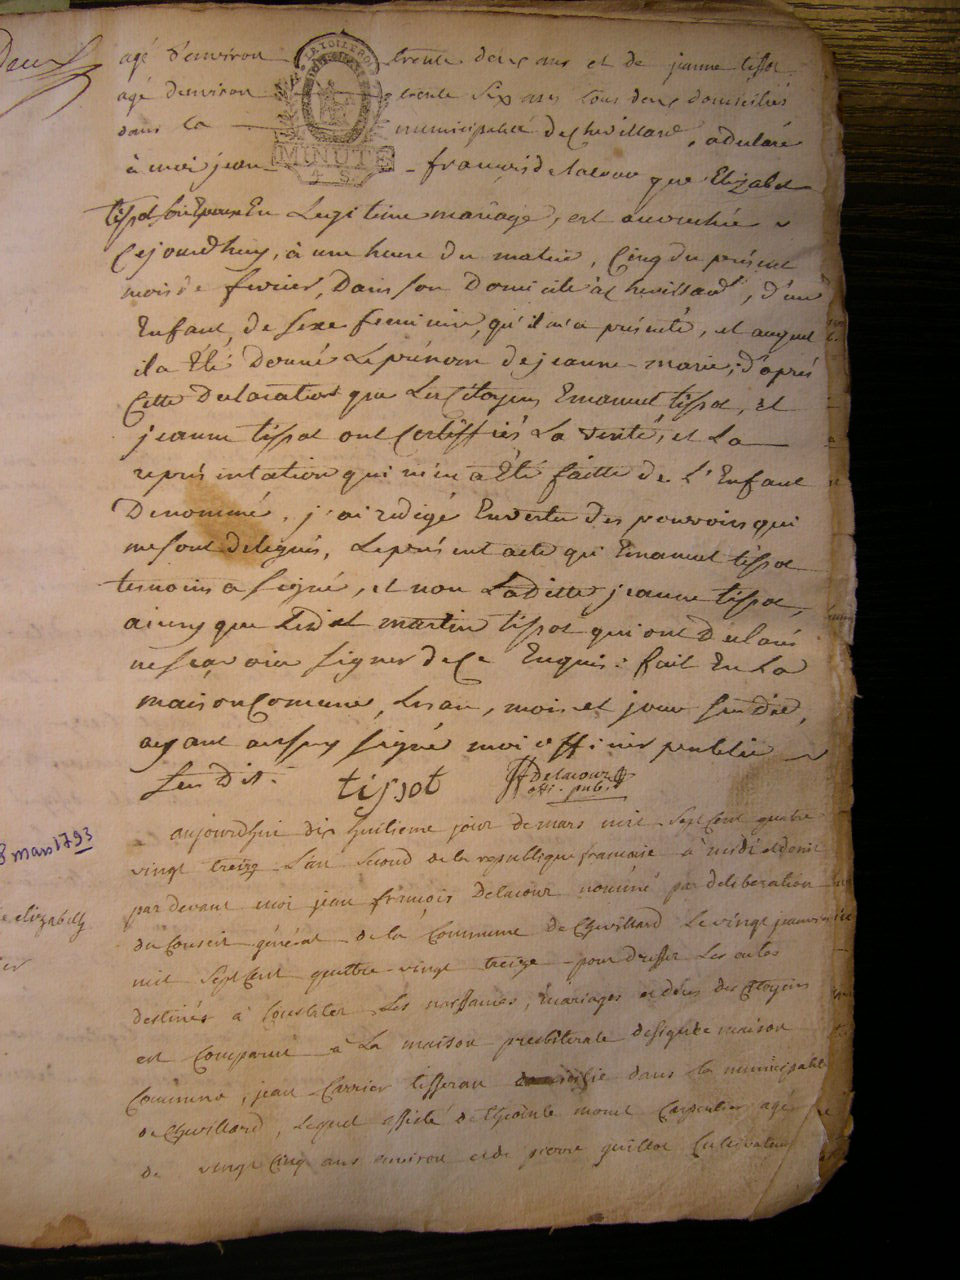 agé d'environ trente deux ans et de jeanne tissot
agé denviron trente six ans tous deux domiciliés
dans la municipalité de Chevillard, a déclaré
à moi jean françois delacour que Elizabet
tissot son Epouse En Legitime mariage, est accouchée
Cejourdhuy, à une heure du matin, Cinq du présent
mois de fevrier, Dans son Domicile à Chevillard, d'un
Enfant, de sexe feminin, qu'il m'a présenté, et auquel
il a Été Donné Le prénom de jeanne-marie, d'après
Cette Declaration que Les Citoyens Emanuel tissot, Et
jeanne tissot ont Certiffiés La verité, et La
représentation qui m'en a Été faitte de L'Enfant
Denommé, j'ai redigé En vertu des pouvoirs qui
me sont delegués, Le présent acte qui Emanuel tissot
temoins a signé, et non Laditte jeanne tissot,
ainsy que Ledit martin tissot qui ont Declaré
ne sçavoir signer de Ce Enquis: fait En La
maison Comune, Les an, mois et jour susdit,
ayant aussy signé moi officier publie
susdit. tissot Delacour
offi. pub.
aujourdhui dix huitieme jour de mars mil sept Cent quatre
vingt treize L'an second de la republique francaise à midi et demi
par devant moi jean françois Delacour nommé par deliberation
du Conseil général de la Commune de Chevillard Le vingt janvier
mil sept Cent quattre-vingt treize pour dresser Les actes
destinés à Constater Les naissances, mariages et décés des Citoyens
est Comparu à La maison presbiterale designée maison
Commune, jean Carrier tisseran domicilie dans la municipalité
de Chevillard, Lequel assisté de monet Carpentier agé
de vingt Cinq ans environ et de pierre guillot Cultivateur
8 mars 1793
elizabeth